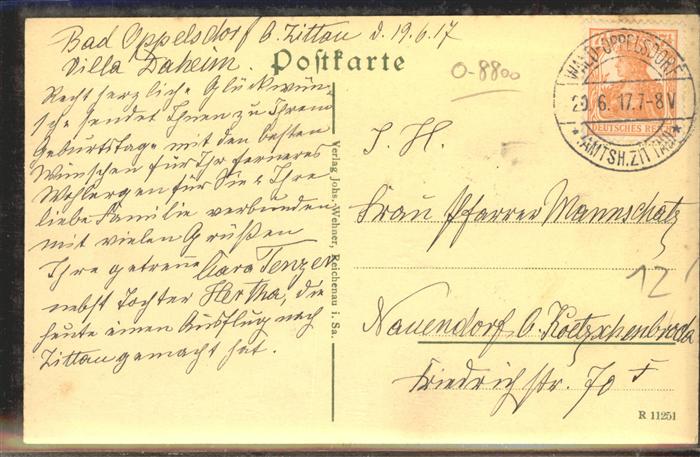 Bad Oppelsdorf b. Zittau d. 19.6.17
Villa Daheim.
Postkarte
Recht herzliche Glückwün-
sche sendet Ihnen zu Ihrem
Geburtstage mit den besten
Wünschen für Ihr ferneres
Wohlergen für Sie u Ihre
liebe Familie verbunden
mit vielen Grüßen
Ihre getreue Clara Tenzer
nebst Tochter Hertha, die
heute einen Ausflug nach
Zittau gemacht hat.
Verlag Johs. Wehner, Reichenau i. Sa.
0-8800
WALD-OPPELSDORF
20.6.17.7-8V
*(AMTSH.ZITTAU)*
DEUTSCHES REICH
7½
S. H.
Frau Pfarrer Mannschatz
12
Naundorf b. Koetzschenbroda
Friedrichstr. 70 F
R 11251